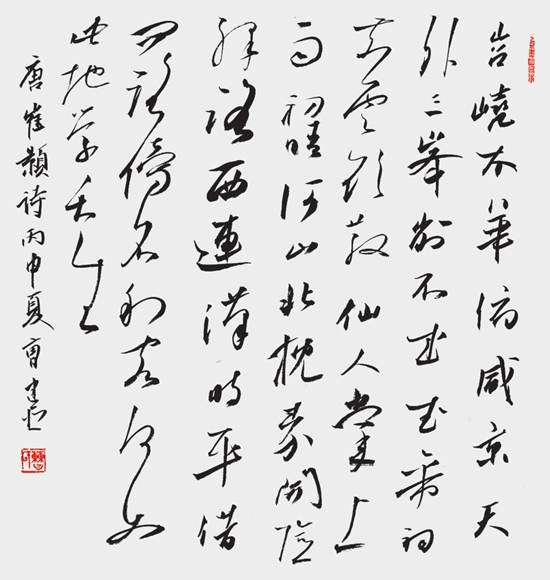 岧嶢太華俯咸京天
外三峯削不成武帝祠
前雲欲散仙人掌上
雨初晴河山北枕秦関險
驿路西連漢时平借
问路傍名利客何如
此地学长生
唐崔颢诗丙申夏曹建